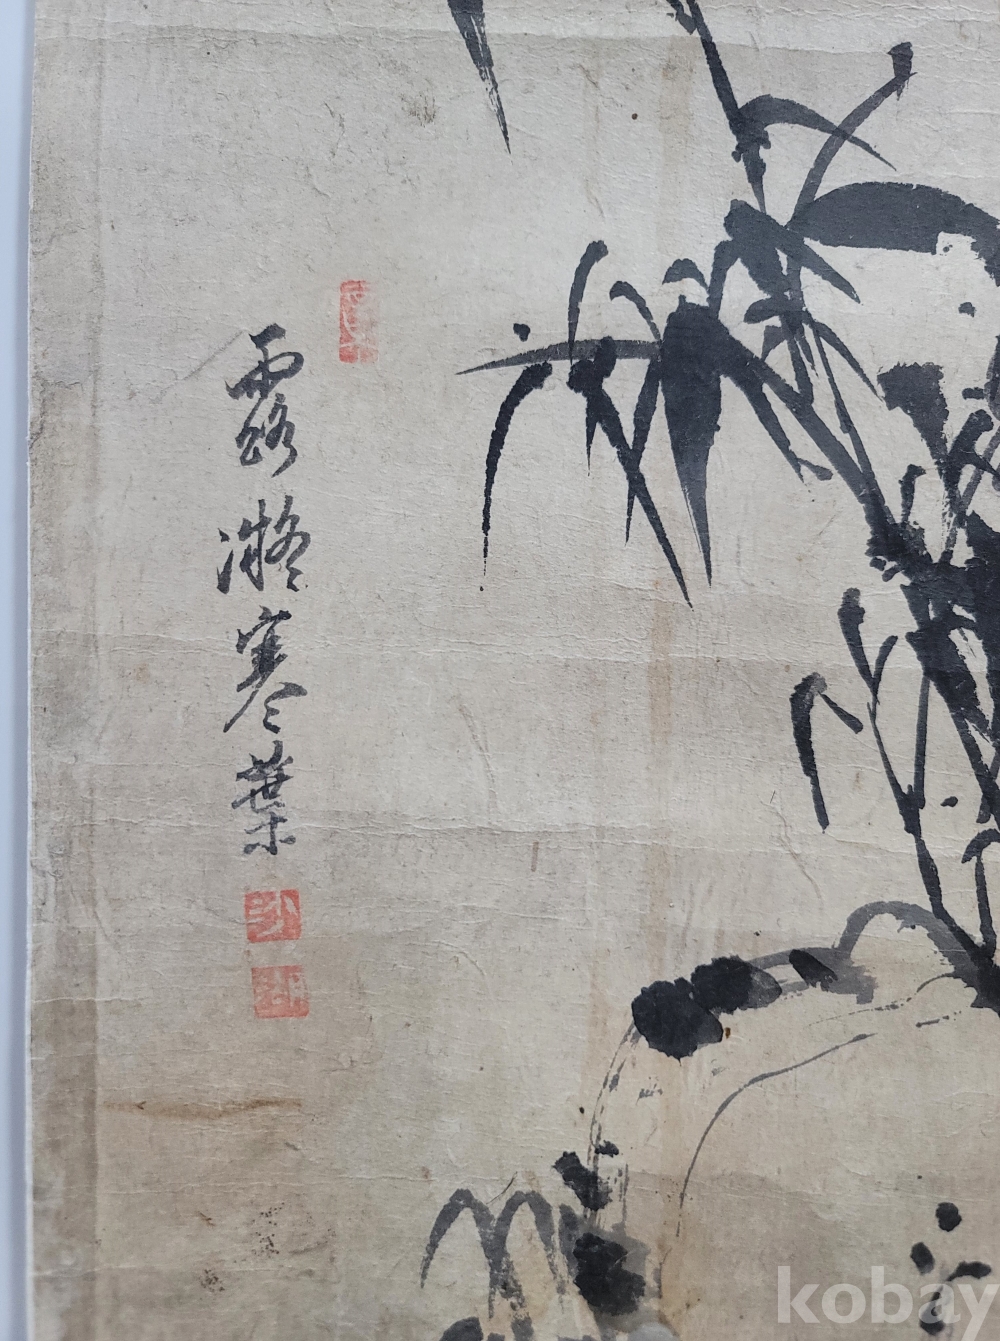 露凝寒葉
kobay